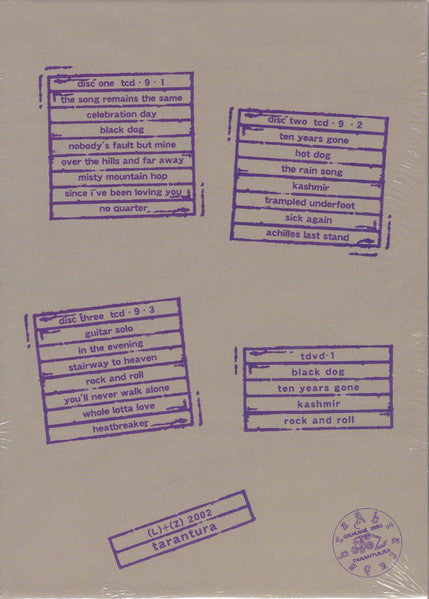 disc one tcd · 9 · 1
the song remains the same
celebration day
black dog
nobody's fault but mine
over the hills and far away
misty mountain hop
since i've been loving you
no quarter
disc two tcd · 9 · 2
ten years gone
hot dog
the rain song
kashmir
trampled underfoot
sick again
achilles last stand
disc three tcd · 9 · 3
guitar solo
in the evening
stairway to heaven
rock and roll
you'll never walk alone
whole lotta love
heatbreaker
tdvd-1
black dog
ten years gone
kashmir
rock and roll
(L)+(Z) 2002
tarantura
GENUINE DISC
TARANTURA